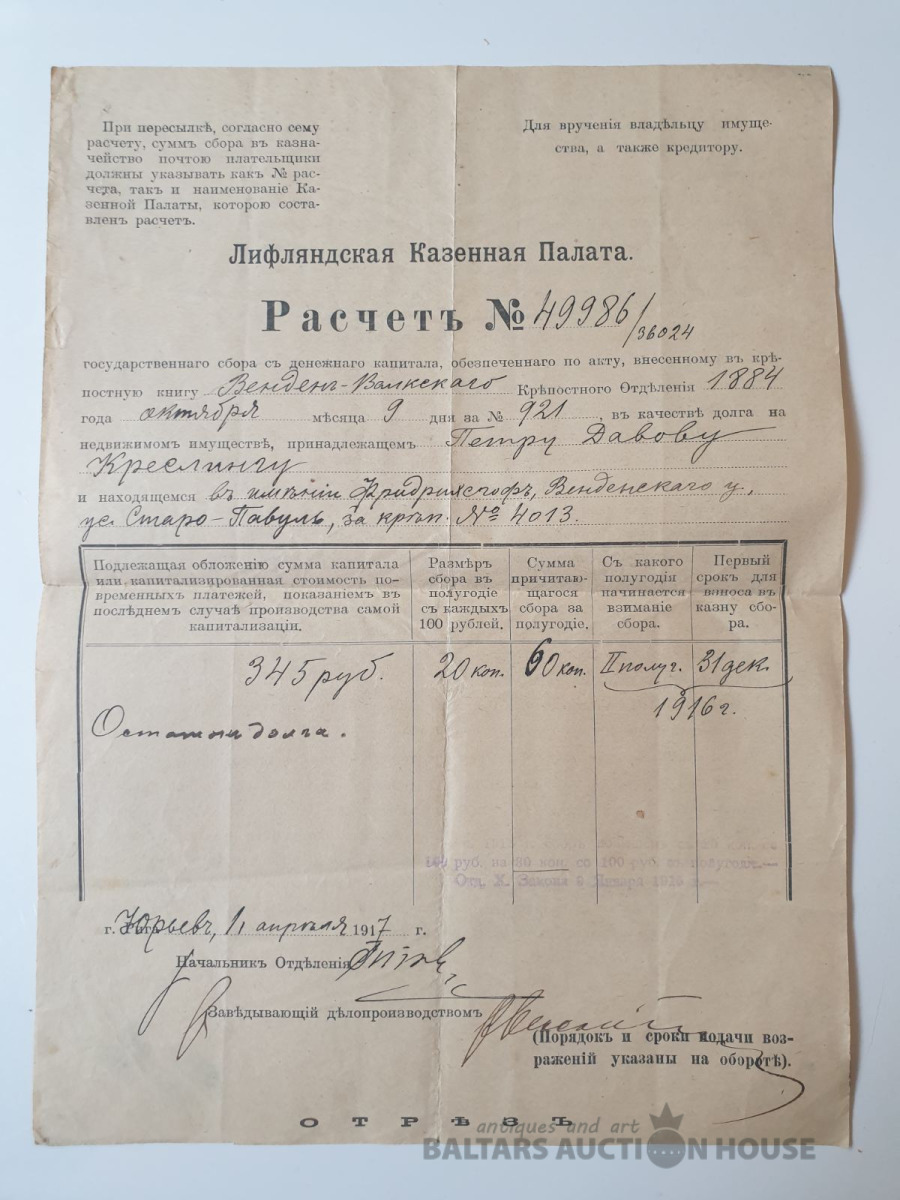 При пересылкѣ, согласно сему
расчету, суммъ сбора въ казна-
чейство почтою плательщики
должны указывать какъ № рас-
чета, такъ и наименованіе Ка-
зенной Палаты, которою соста-
вленъ расчетъ.
Для врученія владѣльцу имуще-
ства, а также кредитору.
Лифляндская Казенная Палата.
Расчетъ № 49986/36024
государственнаго сбора съ денежнаго капитала, обезпеченнаго по акту, внесенному въ крѣ-
постную книгу Венденъ-Валкскаго Крѣпостного Отдѣленія 1884
года октября мѣсяца 9 дня за № 921, въ качествѣ долга на
недвижимомъ имуществѣ, принадлежащемъ Петру Давову
Креслингу
и находящемся въ имѣніи Фридрихсгофъ, Венденскаго у.,
ус. Старо-Павулъ, за крѣп. № 4013.
Подлежащая обложенію сумма капитала
или капитализированная стоимость по-
временныхъ платежей, показаніемъ въ
послѣднемъ случаѣ производства самой
капитализаціи.
Размѣръ
сбора въ
полугодіе
съ каждыхъ
100 рублей.
Сумма
причитаю-
щагося
сбора за
полугодіе.
Съ какого
полугодія
начинается
взиманіе
сбора.
Первый
срокъ для
взноса въ
казну сбо-
ра.
345 руб. 20 коп. 60 коп. II полуг. 31 дек.
1916 г.
Остатки долга.
руб. на 30 коп. со 100 руб. въ полугод.—
Отд. X. Закона
г. Юрьевъ, 11 апрѣля 1917 г.
Начальникъ Отдѣленія
Завѣдывающій дѣлопроизводствомъ
(Порядокъ и сроки подачи воз-
раженій указаны на оборотѣ).
ОТРѢЗЪ
antiques and art
BALTARS AUCTION HOUSE